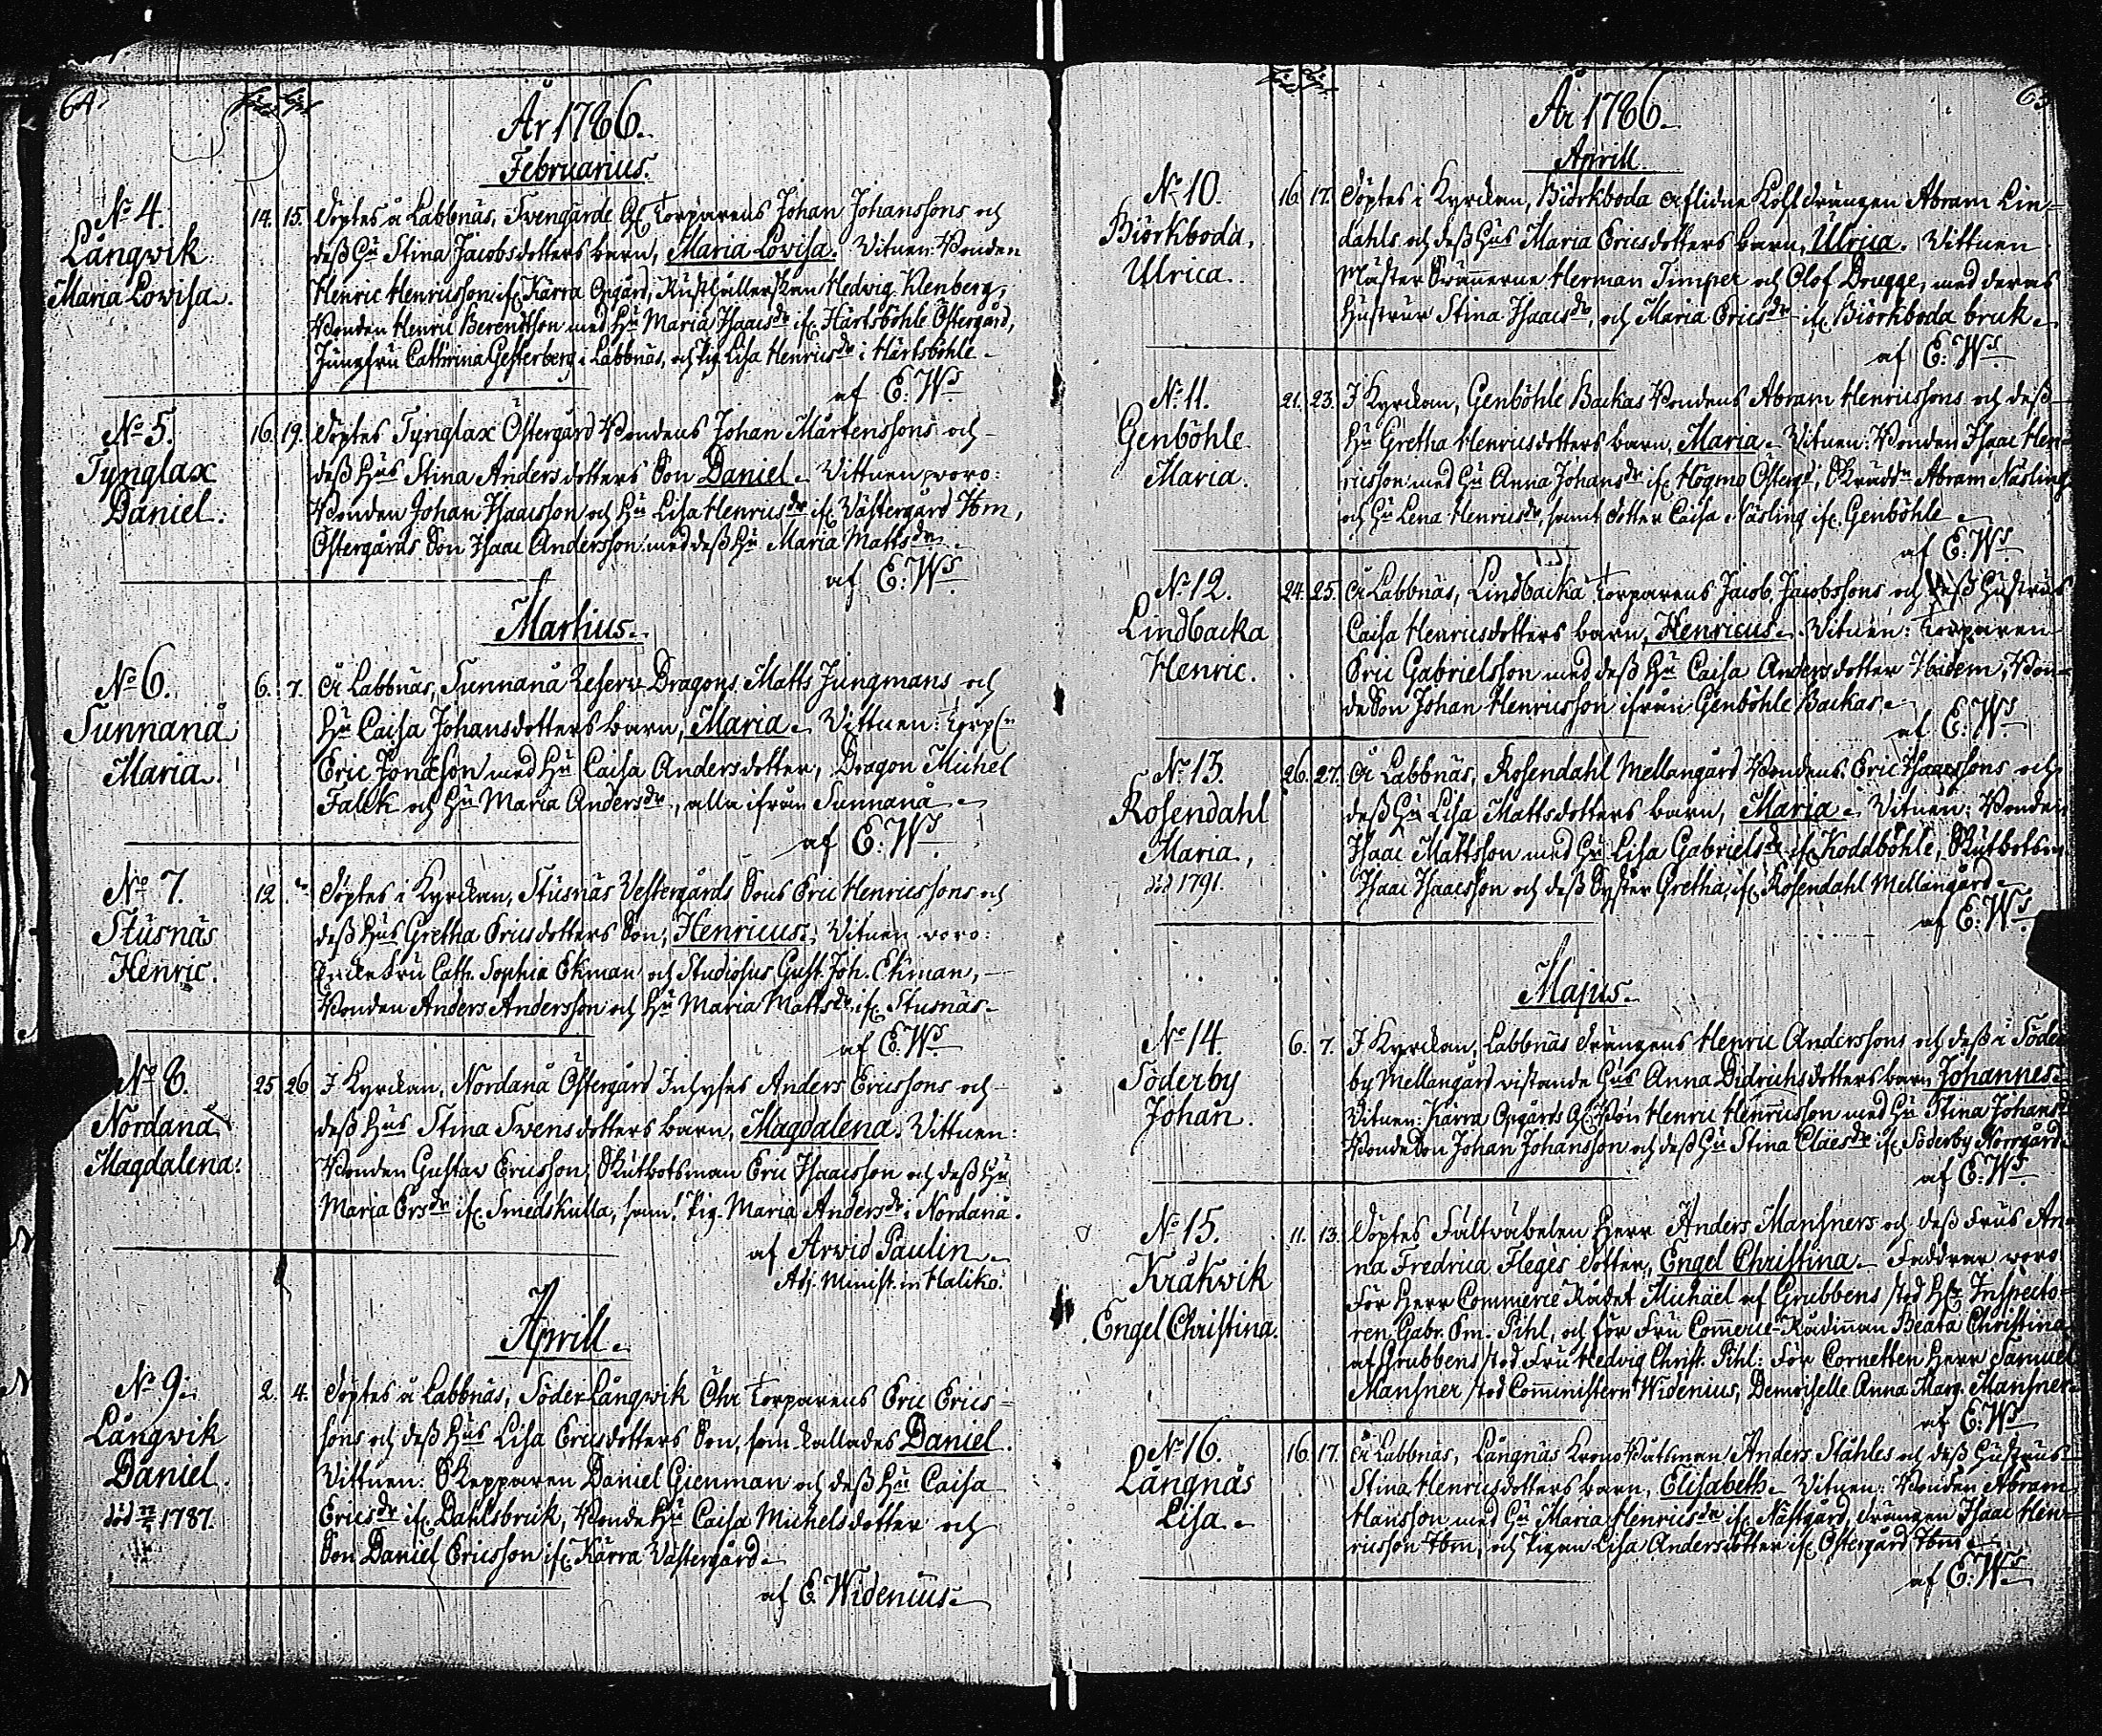 64.
Född Döpt
År 1786.
Februarius.
No 4.
Långwik
Maria Lovisa.
14. 15. Döptes å Labbnäs, Torparens Johan Johanssons och
dess Hu Stina Jacobsdotters barn, Maria Lovisa. Vitnen: Bonden
Henric Henricsson if. Kärra Opgård, Rusthållerskan Hedvig Klenberg,
Bonden Henric Berendtson med Hu Maria Isaacsdr if. Härtsböhle Östergård,
Jungfru Cathrina Gesterberg i Labbnäs, och Pig. Lisa Henricsdr i Härtsböhle.
af E: Ws
No 5.
Tynglax
Daniel.
16. 19. Döptes Tynglax Östergård Bondens Johan Mårtenssons och
dess Hus Stina Andersdotters Son Daniel. Vittnen woro:
Bonden Johan Isaacsson och Hu Lisa Henricsdr if. Västergård Ibm,
Östergårds Son Isaac Andersson med dess Hu Maria Mattsdr.
af E: Ws.
Martius.
No 6.
Sunnanå
Maria.
6. 7. Å Labbnäs, Sunnanå Reserv-Dragons Matts Jungmans och
Hu Caisa Johansdotters barn, Maria. Vittnen: Torpn
Eric Jonasson med Hu Caisa Andersdotter, Dragon Michel
Falck och Hu Maria Andersdr., alla ifrån Sunnanå.
af E: Ws.
No 7.
Stusnäs
Henric.
12. Döptes i Kyrckan, Stusnäs Vestergårds Sons Eric Henricssons och
dess Hus Gretha Ericsdotters Son, Henricus. Vitnen voro:
Enckefru Cath. Sophia Ekman och Studiosus Gust. Joh. Ekman,
Bonden Anders Andersson och Hu Maria Mattsdr. if. Stusnäs.
af E: Ws.
No 8.
Nordanå
Magdalena.
25 26 I Kyrckan, Nordanå Östergård Inhyses Anders Ericssons och
dess Hus Stina Svensdotters barn, Magdalena. Vittnen:
Bonden Gustav Ericsson, Skutbotsman Eric Isaacsson och dess Hu
Maria Ersdr if. Smedskulla, samt Pig. Maria Andersdr i Nordanå.
af Arvid Paulin
Adj. Minist. in Haliko.
Aprill.
No 9.
Långwik
Daniel.
död 1787.
2. 4. Döptes å Labbnäs, Söder Långwik Öhr Torparens Eric Erics-
sons och dess Hus Lisa Ericsdotters Son, som kallades Daniel.
Vittnen: Skepparen Daniel Gienman och dess Hu Caisa
Ericsdr if. Dahlsbruk, Bonde Hu Caisa Michelsdotter och
Son Daniel Ericsson if. Kärra Västergård.
af E. Widenius.
65
År 1786.
Aprill
No 10.
Biörkboda,
Ulrica.
16. 17. Döptes i Kyrckan, Biörkboda aflidne Kohldrängen Abram Lin-
dahls och dess Hus Maria Ericsdotters barn, Ulrica. Vittnen
Mäster Svännerne Herman Timper och Olof Drugge, med deras
Hustrur Stina Isaacsdr, och Maria Ericsdr if. Biörkboda bruk.
af E: Ws.
No 11.
Genböhle
Maria.
21. 23. I Kyrckan, Genböhle Backas Bondens Abram Henricssons och dess
Hu Gretha Henricsdotters barn, Maria. Vitnen: Bonden Isaac Hen-
ricsson med Hu Anna Johansdr if. Högmo Östergd, Skräddr Abram Näsling
och Hu Lena Henricsdr, samt dotter Caisa Näsling if. Genböhle.
af E: Ws
No 12.
Lindbacka
Henric.
24. 25. Å Labbnäs, Lindbacka Torparens Jacob Jacobssons och dess Hustrus
Caisa Henricsdotters barn, Henricus. Vitnen: Torparen
Eric Gabrielsson med dess Hu Caisa Andersdotter Ibidem, Bon-
deson Johan Henricsson ifrån Genböhle Backas.
af E: Ws.
No 13.
Rosendahl
Maria,
död 1791.
26. 27. Å Labbnäs, Rosendahl Mellangård Bondens Eric Isaacssons och
dess Hu Lisa Mattsdotters barn, Maria. Vitnen: Bonden
Isaac Mattsson med Hu Lisa Gabrielsdr if. Koddböhle, Skutbotsm.
Isaac Isaacsson och dess Syster Gretha, if. Rosendahl Mellangård.
af E: Ws.
Majus.
No 14.
Söderby
Johan.
6. 7. I Kyrckan, Labbnäs drängens Henric Anderssons och dess i Söder-
by Mellangård vistande Hus Anna Didrichsdotters barn Johannes.
Vitnen: Kärra Opgårds Henric Henricsson med Hu Stina Johansdr
Bondeson Johan Johansson och dess Hu Stina Claesdr if. Söderby Norrgård.
af E: Ws.
No 15.
Kråkvik
Engel Christina.
11. 13. Döptes Fältväbelen Herr Anders Mansners och dess Frus An-
na Fredrica Fleges dotter, Engel Christina. Faddrar woro
För Herr Commercie Rådet Michaël af Grubbens stod Hr Inspecto-
ren Gabr. Em. Pihl, och för Fru Commercie-Rådinnan Beata Christina
af Grubbens stod Fru Hedvig Christ. Pihl: För Cornetten Herr Samuel
Mansner stod Comministern Widenius, Demoiselle Anna Marg. Mansner.
af E: Ws
No 16.
Långnäs
Lisa.
16. 17. Å Labbnäs, Långnäs Krono Båtsman Anders Ståhles och dess Hustrus
Stina Henricsdotters barn, Elisabeth. Vitnen: Bonden Abram
Hansson med Hu Maria Henricsdr if. Nästgård, drängen Isaac Hen-
ricsson Ibm, och Pigan Lisa Andersdotter if. Östergård Ibm.
af E: Ws.